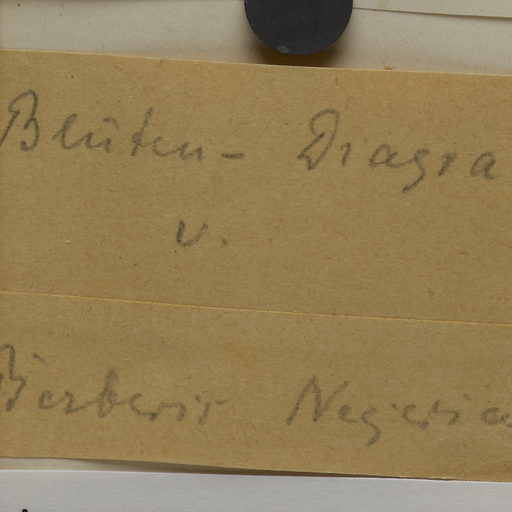 Blüten- Diagra
v.
Berberis Negeria